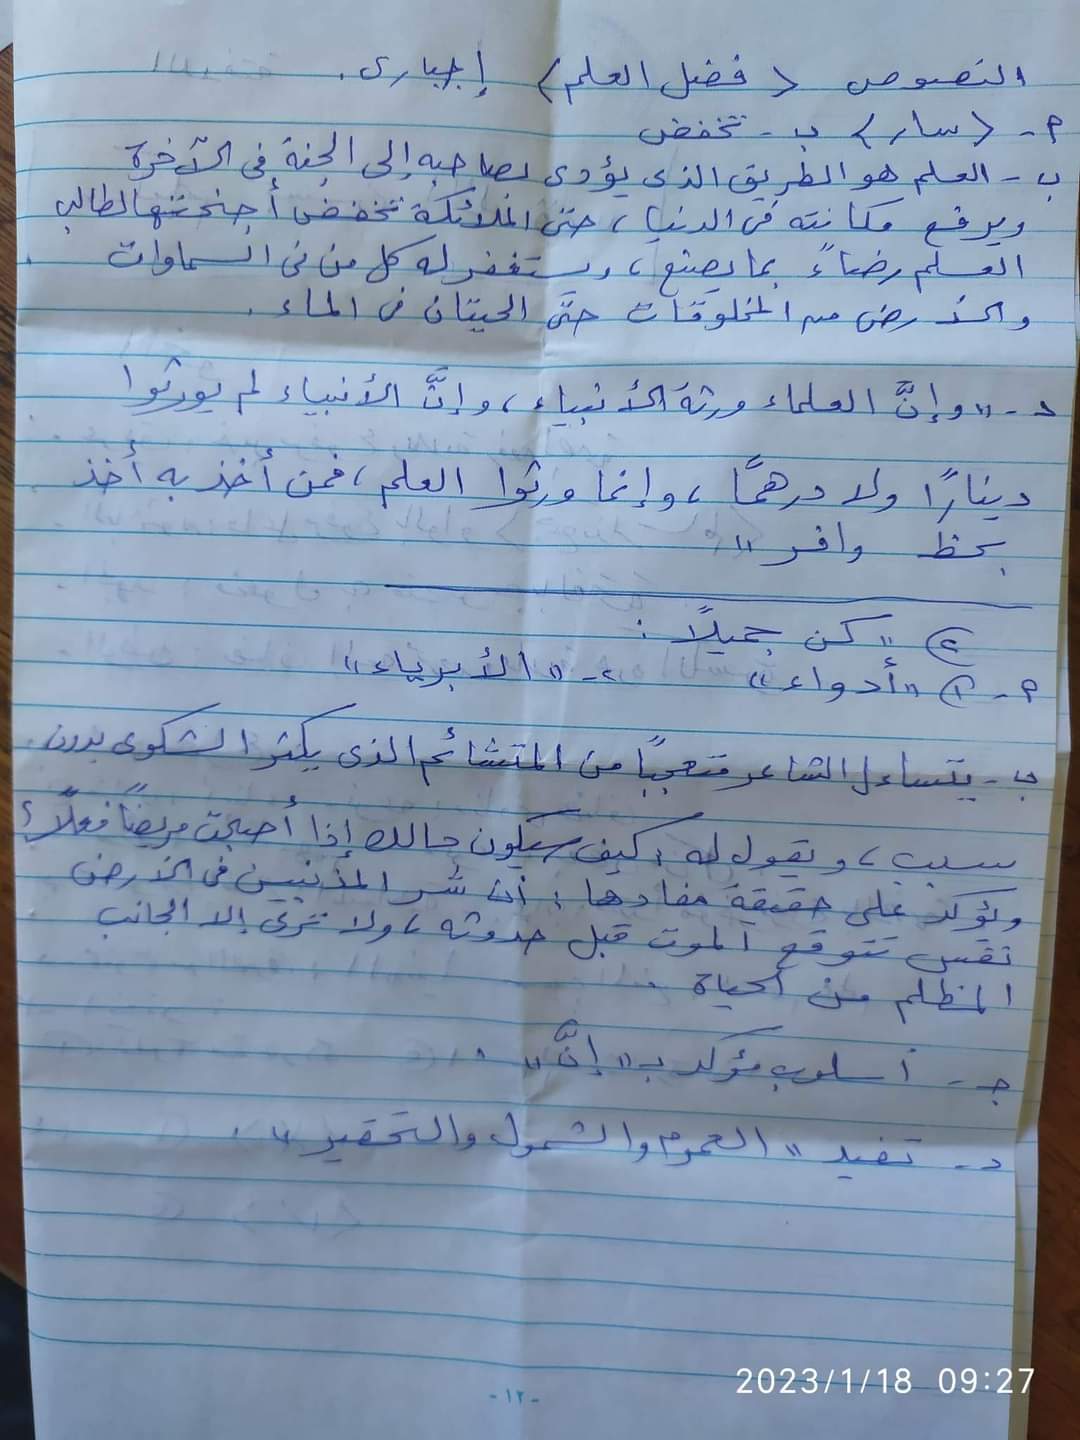 النصوص (فضل العلم) إجبارى.
٢- (سار) ب- تخفض
ب- العلم هو الطريق الذى يؤدى بصاحبه إلى الجنة فى الآخرة
ويرفع مكانته فى الدنيا، حتى الملائكة تخفض أجنحتها لطالب
العلم رضاءً بما يصنع، ويستغفر له كل من فى السماوات
والأرض من المخلوقات حتَّى الحيتان فى الماء.
د- "وإنَّ العلماء ورثة الأنبياء، وإنَّ الأنبياء لم يورثوا
دينارًا ولا درهمًا، وإنما ورثوا العلم، فمن أخذ به أخذ
بحظ وافر"
② "كن جميلًا:
٢- ① "أدواء" ٢- "الأبرياء"
ب- يتساءل الشاعر متعجبًا من المتشائم الذى يكثر الشكوى بدون
سبب، ويقول له: كيف سيكون حالك إذا أصبحت مريضًا فعلًا؟
ويؤكد على حقيقة مفادها: أن شر المذنبين فى الأرض
نفس تتوقع الموت قبل حدوثه، ولا ترى إلا الجانب
المظلم من الحياة
جـ- أسلوب مؤكد بـ "إنَّ".
د- تفيد "العموم والشمول والتحقير".
-١٢-
2023/1/18 09:27